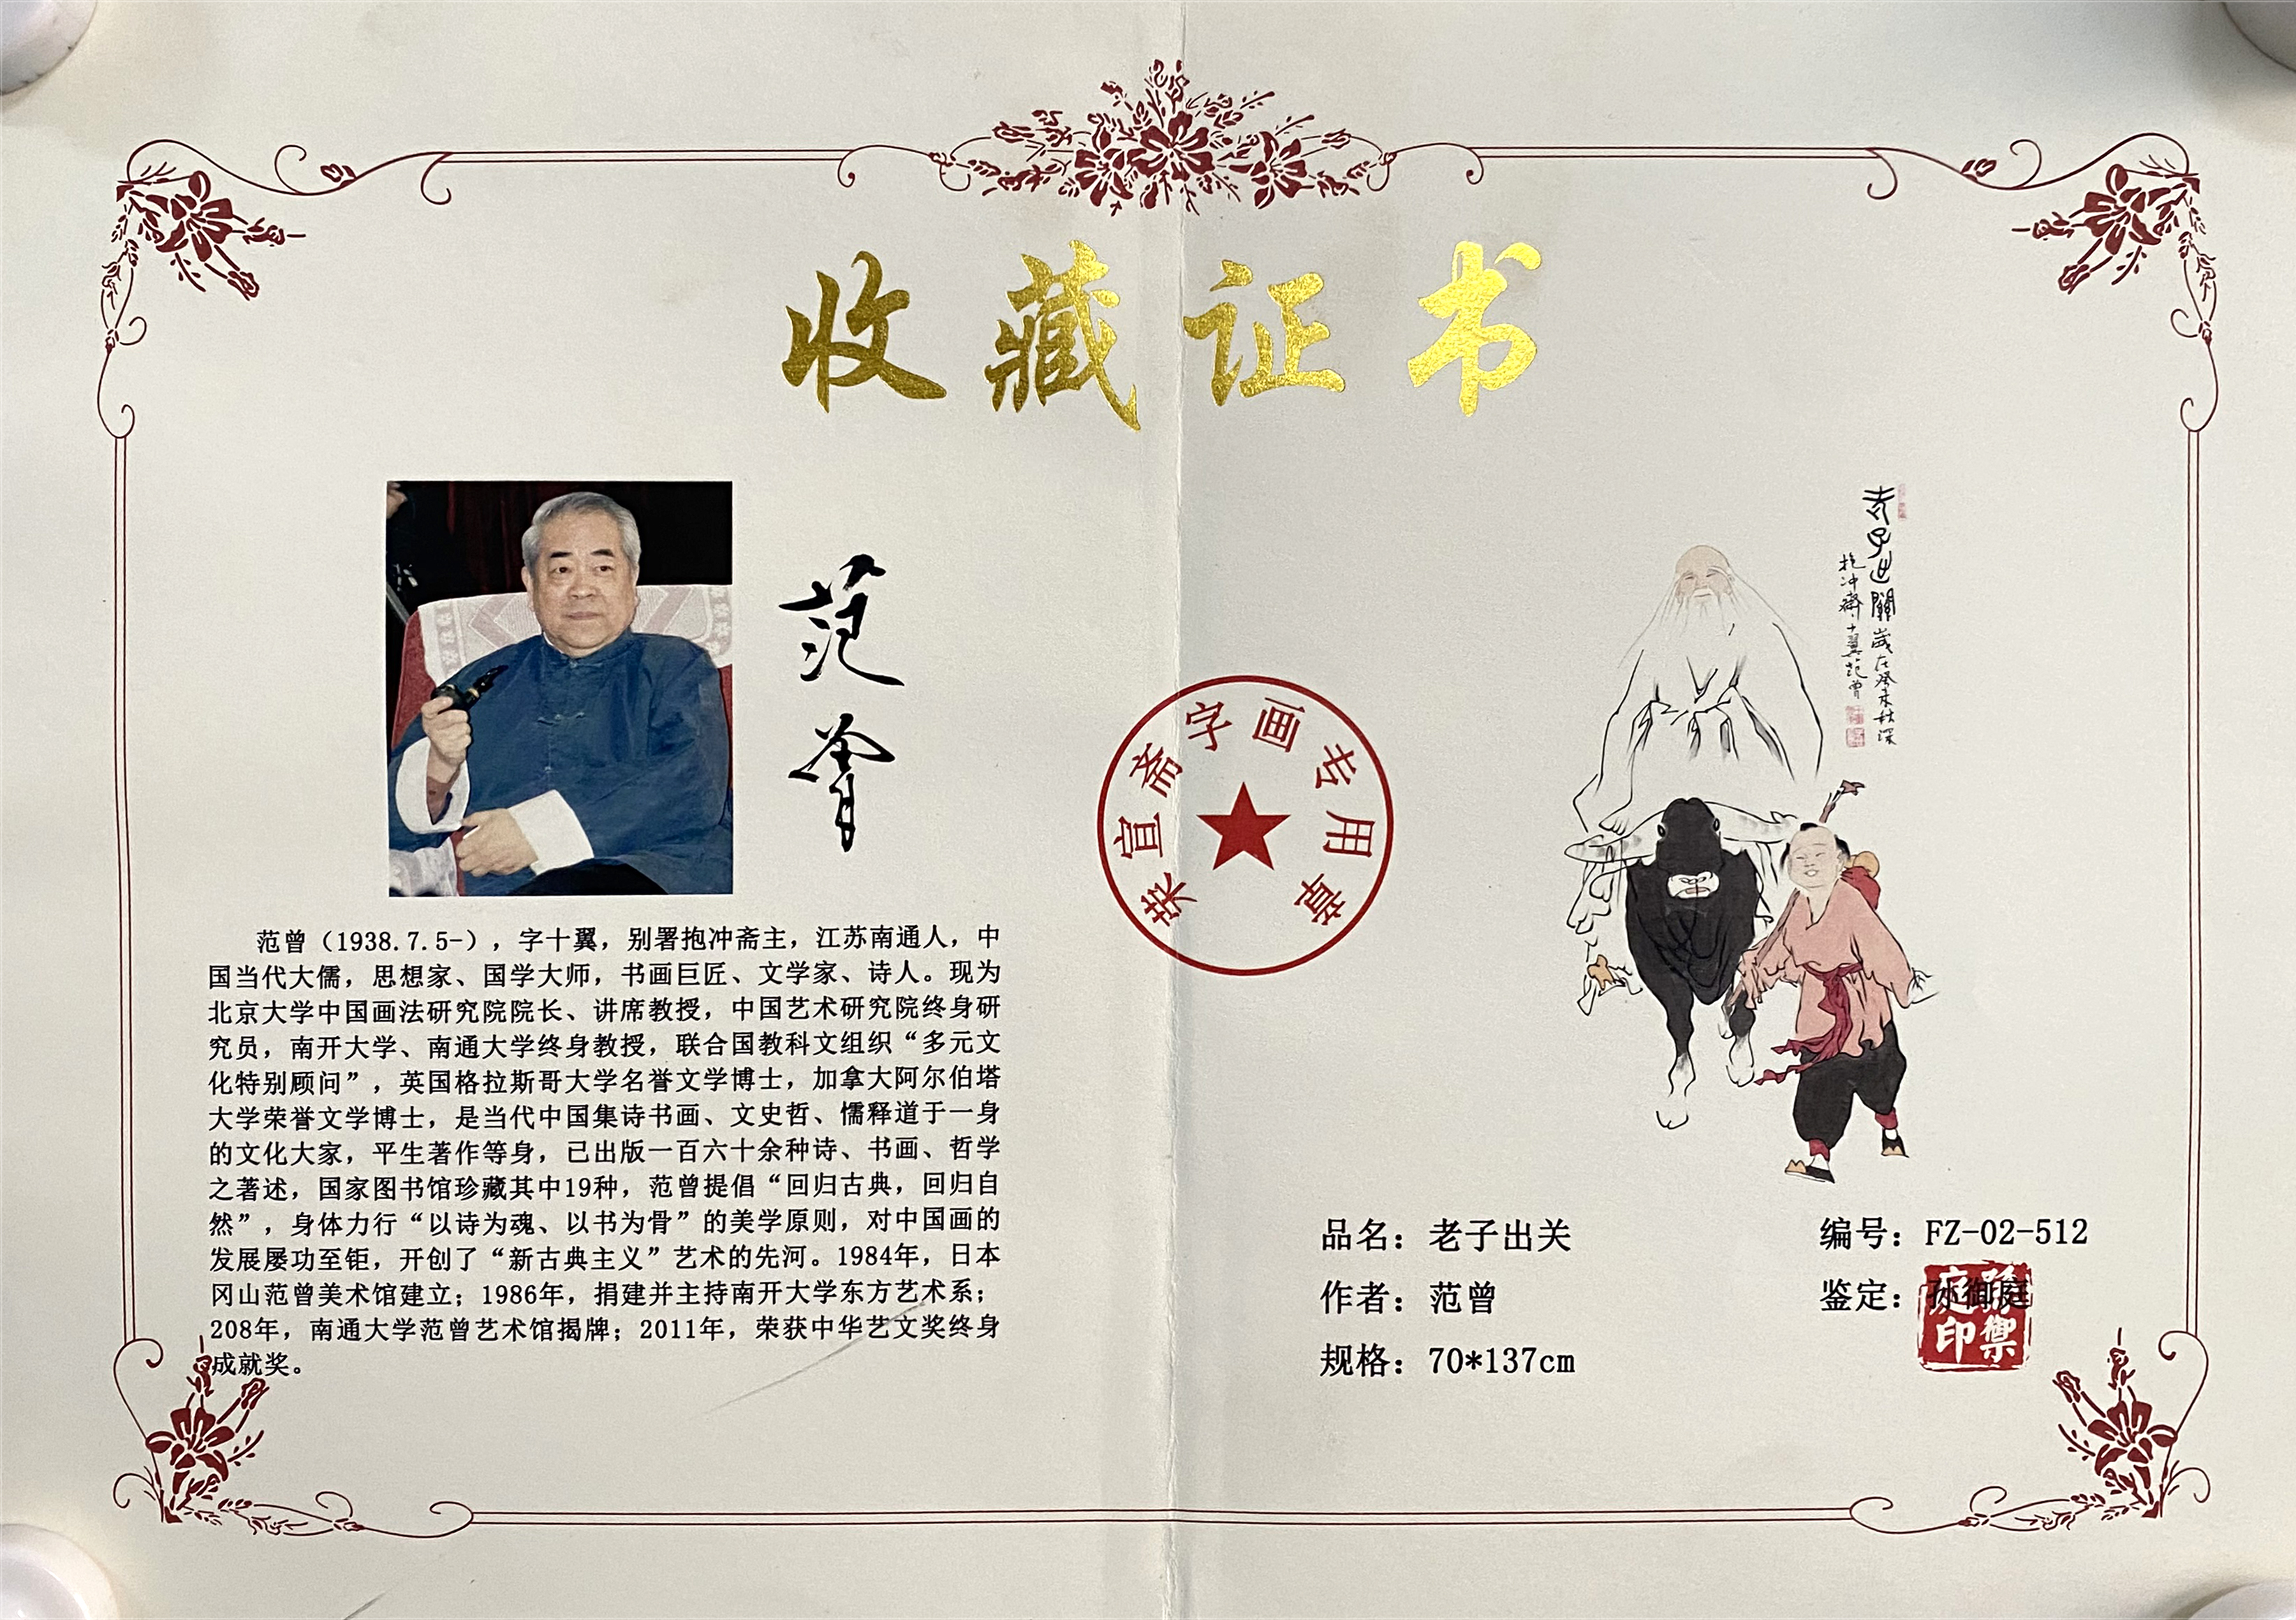 收藏证书
范曾
范曾（1938.7.5-），字十翼，别署抱冲斋主，江苏南通人，中
国当代大儒，思想家、国学大师，书画巨匠、文学家、诗人。现为
北京大学中国画法研究院院长、讲席教授，中国艺术研究院终身研
究员，南开大学、南通大学终身教授，联合国教科文组织“多元文
化特别顾问”，英国格拉斯哥大学名誉文学博士，加拿大阿尔伯塔
大学荣誉文学博士，是当代中国集诗书画、文史哲、儒释道于一身
的文化大家，平生著作等身，已出版一百六十余种诗、书画、哲学
之著述，国家图书馆珍藏其中19种，范曾提倡“回归古典，回归自
然”，身体力行“以诗为魂、以书为骨”的美学原则，对中国画的
发展屡功至钜，开创了“新古典主义”艺术的先河。1984年，日本
冈山范曾美术馆建立；1986年，捐建并主持南开大学东方艺术系；
208年，南通大学范曾艺术馆揭牌；2011年，荣获中华艺文奖终身
成就奖。
荣宣斋字画专用章
老子出關歲在癸未秋深
抱冲齋十翼范曾
品名：老子出关
作者：范曾
规格：70*137cm
编号：FZ-02-512
鉴定：孙御庭
孫御庭印